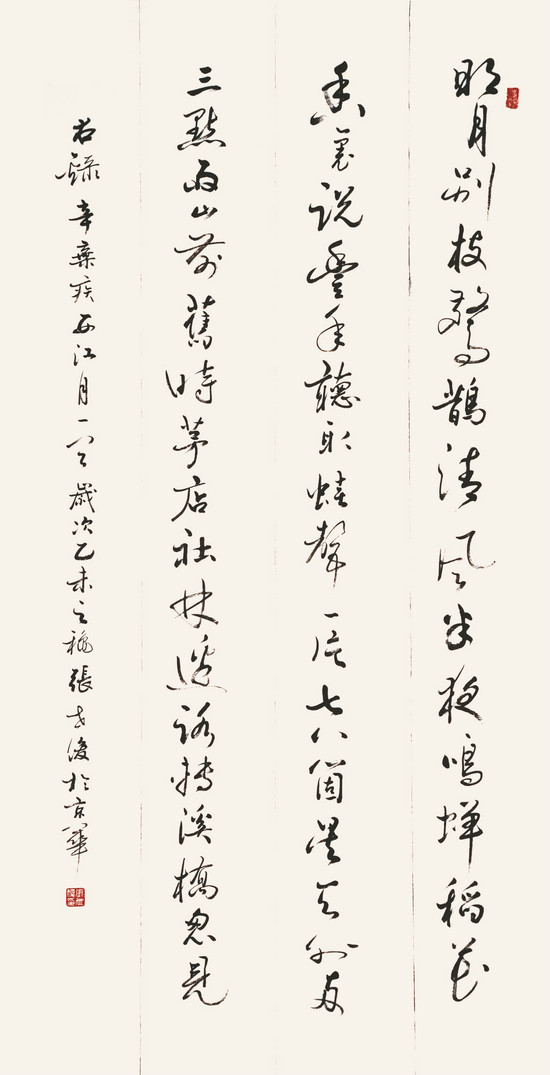 明月別枝驚鵲清風半夜鳴蟬稻花
香裏説豐年聽取蛙聲一片七八箇星天外兩
三點雨山前舊時茅店社林邊路轉溪橋忽見
右録辛棄疾西江月一闋歲次乙未之秋張於京華